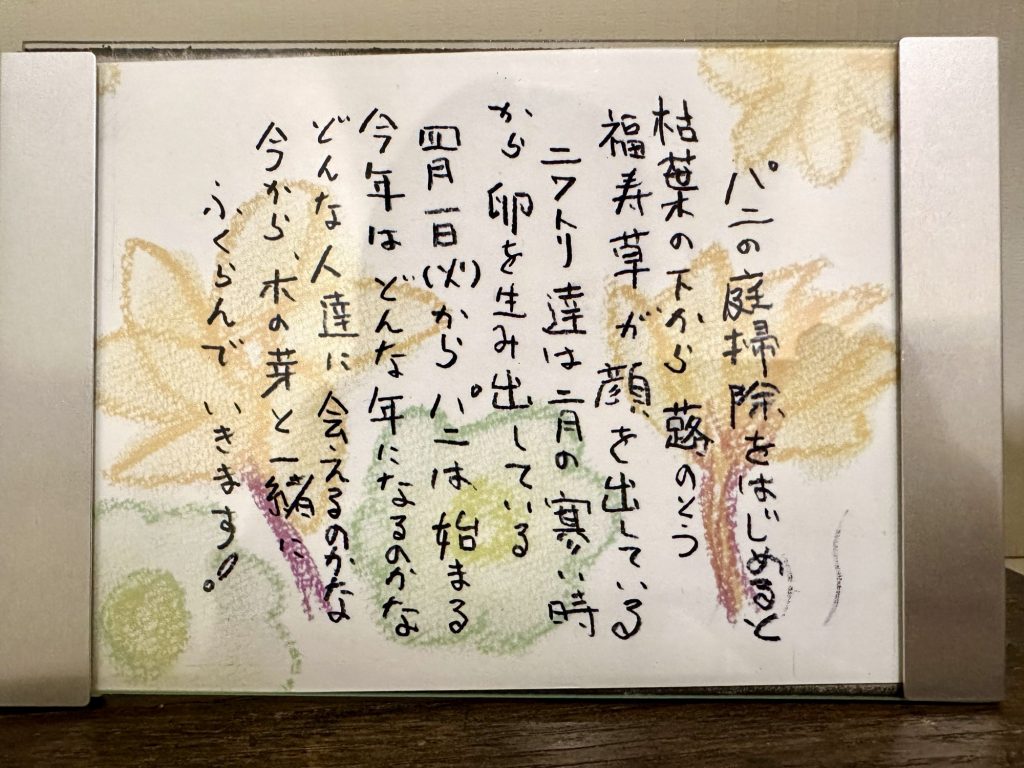 パニの庭掃除をはじめると
枯葉の下から蕗のとう
福寿草が顔を出している
ニワトリ達は二月の寒い時
から卵を生み出している
四月一日(火)からパニは始まる
今年はどんな年になるのかな
どんな人達に会えるのかな
今から、木の芽と一緒に
ふくらんでいきます!